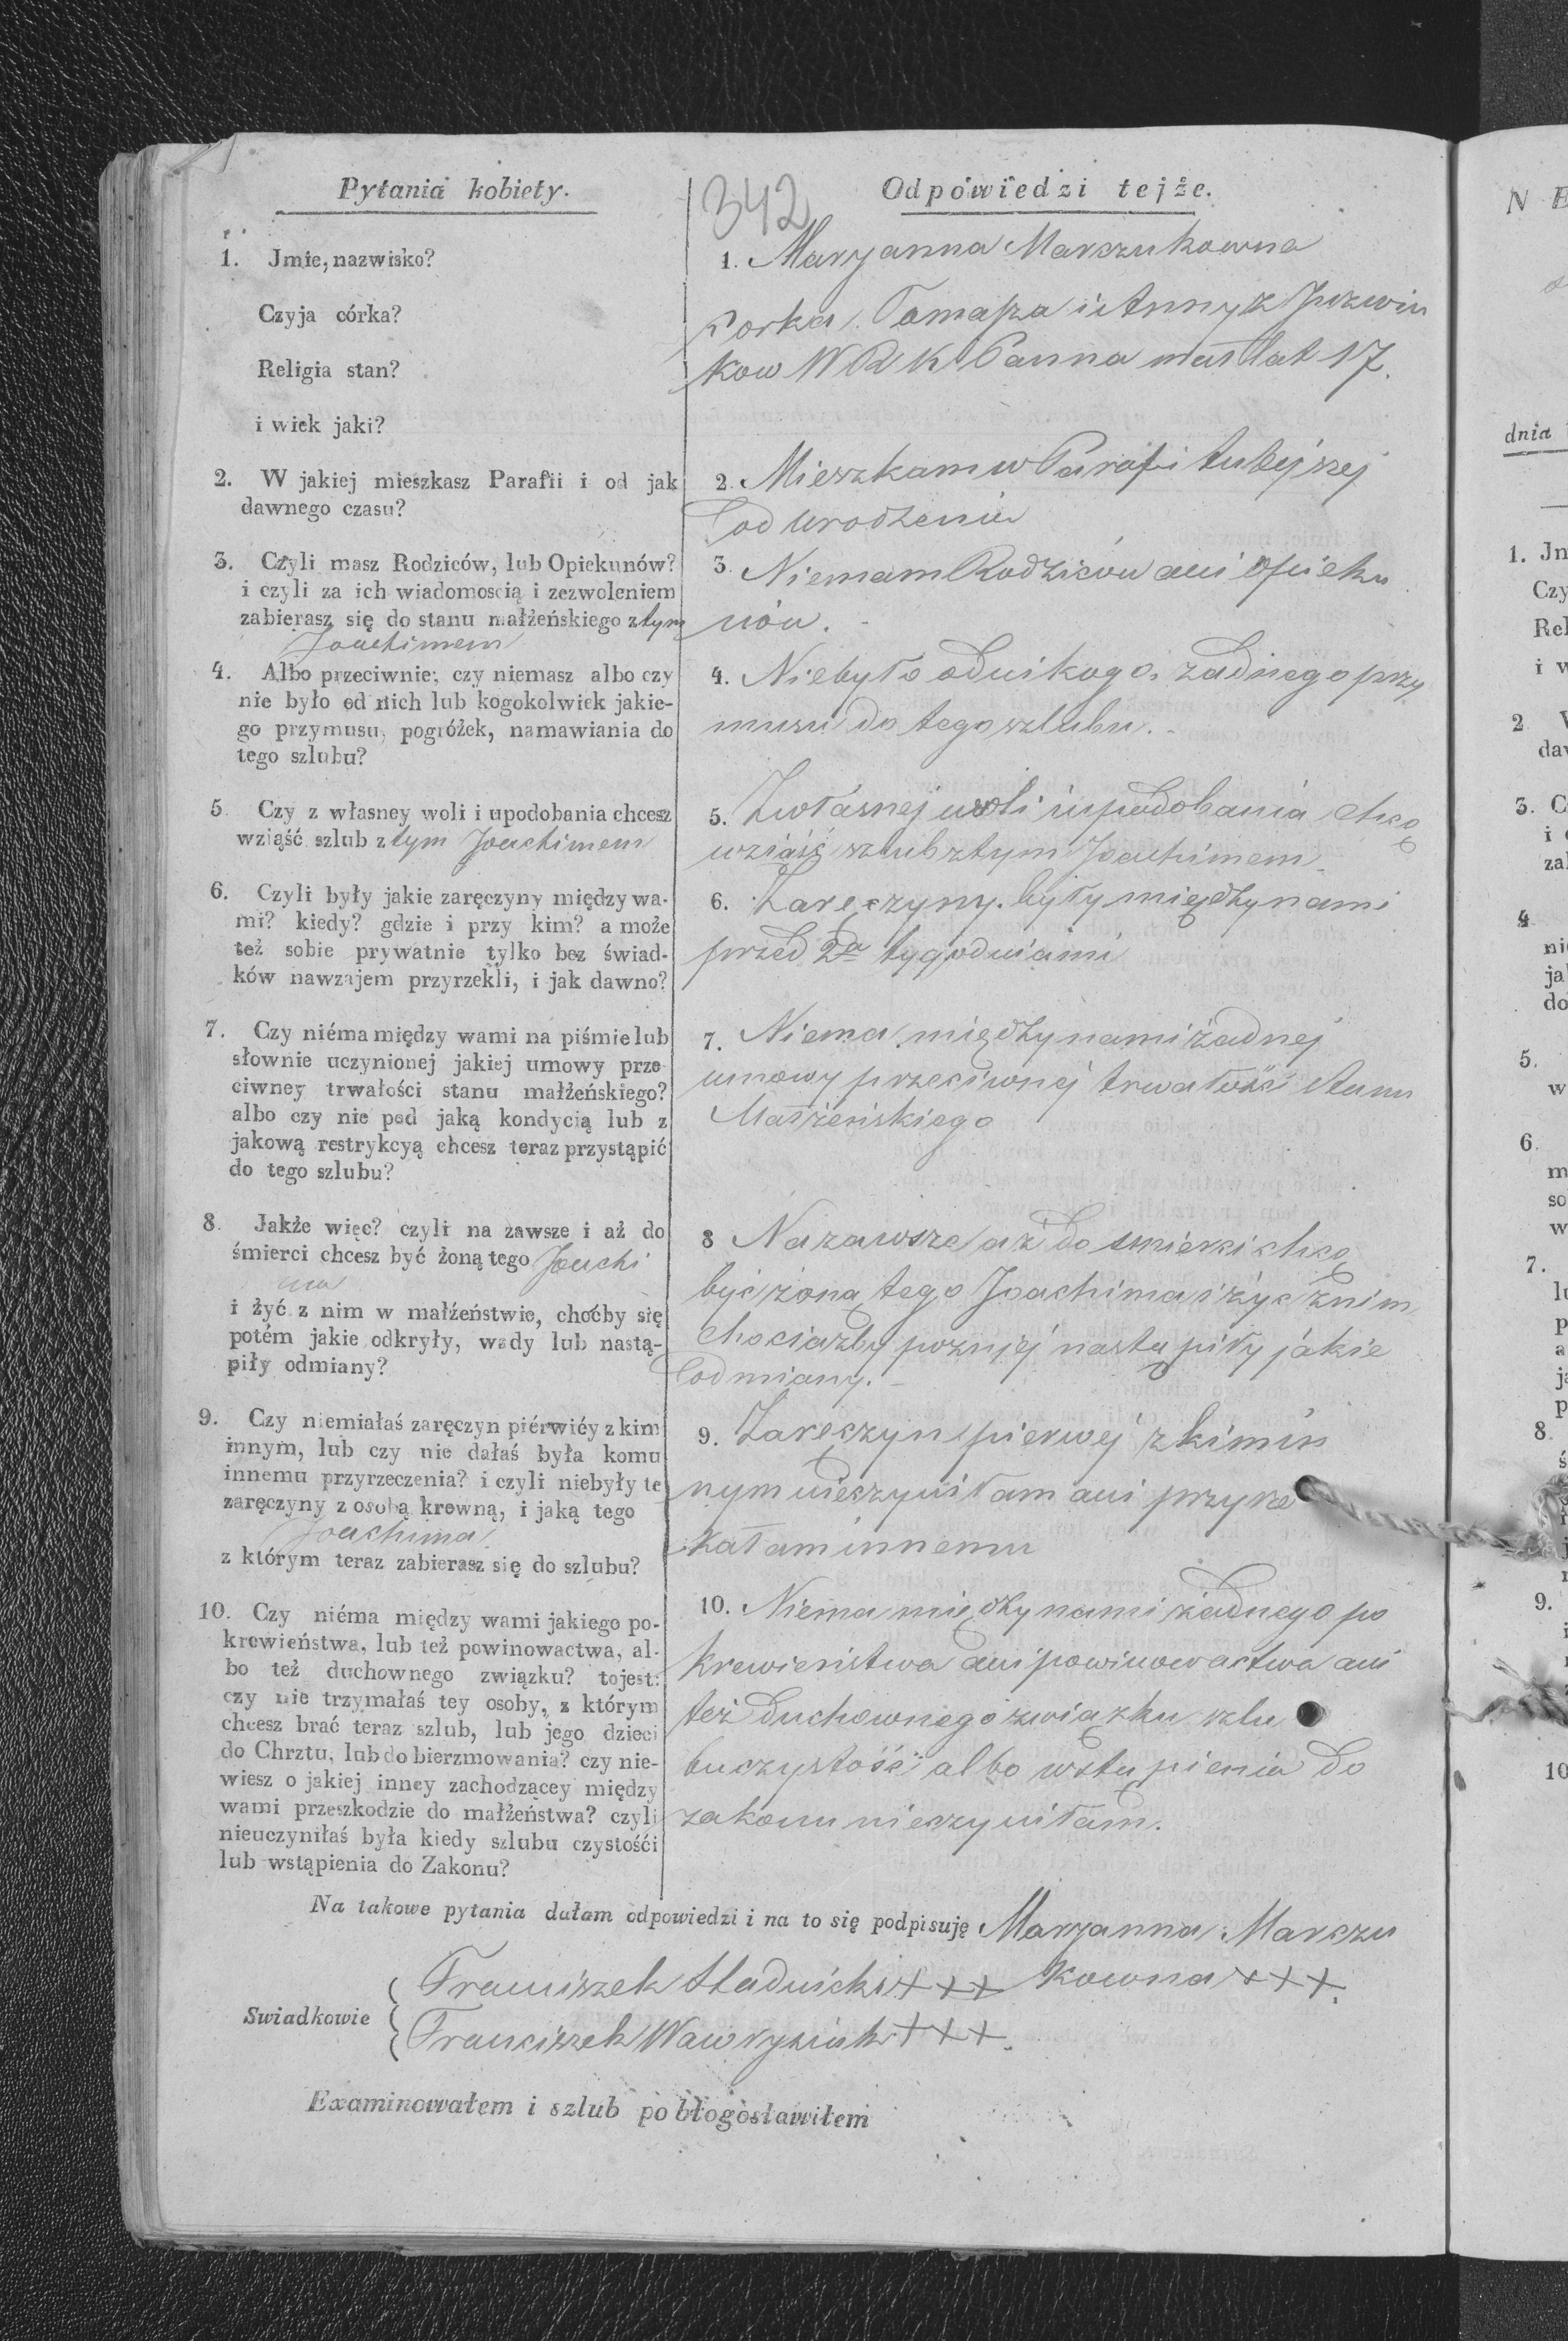 Pytania kobiety.
342
Odpowiedzi tejże.
1. Jmie, nazwisko?
Czyja córka?
Religia stan?
i wiek jaki?
1. Maryanna Marczukowna
Corka Tomasza i Anny z Juzwiu
kow W R K Panna mas lat 17.
2. W jakiej mieszkasz Parafii i od jak
dawnego czasu?
2. Mieszkam w Parafi tutejszej
od urodzenia
3. Czyli masz Rodziców, lub Opiekunów?
i czyli za ich wiadomoscią i zezwoleniem
zabierasz się do stanu małżeńskiego z tym
Joachimem
3. Niemam Rodziców ani Opieku
nów.
4. Albo przeciwnie; czy niemasz albo czy
nie było od nich lub kogokolwiek jakie-
go przymusu, pogróżek, namawiania do
tego szlubu?
4. Niebyło od nikogo żadnego przy
musu do tego szlubu.
5. Czy z własney woli i upodobania chcesz
wziąść szlub z tym Joachimem
5. Z własnej woli i upodobania chcę
wziąść szlub z tym Joachimem
6. Czyli były jakie zaręczyny między wa-
mi? kiedy? gdzie i przy kim? a może
też sobie prywatnie tylko bez świad-
ków nawzajem przyrzekli, i jak dawno?
6. Zaręczyny były między nami
przed 2a tygodniami
7. Czy niéma między wami na piśmie lub
słownie uczynionej jakiej umowy prze
ciwney trwałości stanu małżeńskiego?
albo czy nie pod jaką kondycią lub z
jakową restrykcyą chcesz teraz przystąpić
do tego szlubu?
7. Niema między nami żadnej
umowy przeciwnej trwałości stanu
Małżeńskiego
8. Jakże więc? czyli na zawsze i aż do
śmierci chcesz być żoną tego Joachi
ma
i żyć z nim w małżeństwie, choćby się
potém jakie odkryły, wady lub nastą-
piły odmiany?
8 Na zawsze aż do smierci chcę
być żoną tego Joachima i żyć z nim
chociażby poznjéj nastąpiły jakie
odmiany.
9. Czy niemiałaś zaręczyn piérwiéy z kim
innym, lub czy nie dałaś była komu
innemu przyrzeczenia? i czyli niebyły te
zaręczyny z osobą krewną, i jaką tego
Joachima
z którym teraz zabierasz się do szlubu?
9. Zaręczyn pierwej z kim in
nym nieczyniłam ani przyrze
kałam innemu
10. Czy niéma między wami jakiego po-
krewieństwa, lub też powinowactwa, al-
bo też duchownego związku? tojest:
czy nie trzymałaś tey osoby, z którym
chcesz brać teraz szlub, lub jego dzieci
do Chrztu, lub do bierzmowania? czy nie-
wiesz o jakiej inney zachodzącey między
wami przeszkodzie do małżeństwa? czyli
nieuczyniłaś była kiedy szlubu czystośći
lub wstąpienia do Zakonu?
10. Niema między nami żadnego po
krewieństwa ani powinowactwa ani
też duchownego związku szlu
bu czystości albo wstąpienia do
zakonu nieczyniłam.
Na takowe pytania dałam odpowiedzi i na to się podpisuję Maryanna Marczu
kowna +++
Swiadkowie
Franciszek Stadnicki +++
Franciszek Wawryziuk +++.
Examinowałem i szlub pobłogosławiłem
N E
dnia
1. Jn
Czy
Rel
i w
2
da
3. C
i
za
4
ni
ja
do
5.
w
6.
m
so
w
7.
lu
p
a
j
p
8.
ś
9.
10